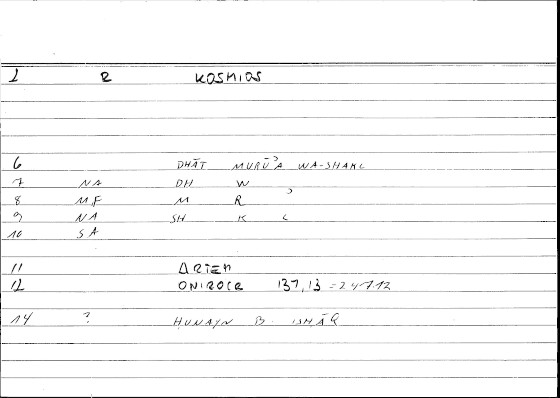 1 R KOSMIOS
6 DHĀT MURŪʾA WA-SHAKL
7 NA DH W
8 MF M R ʾ
9 NA SH K L
10 SA
11 ARTEM
12 ONIROCR 137,13 = 247,12
14 ? ḤUNAYN B. ISḤĀQ